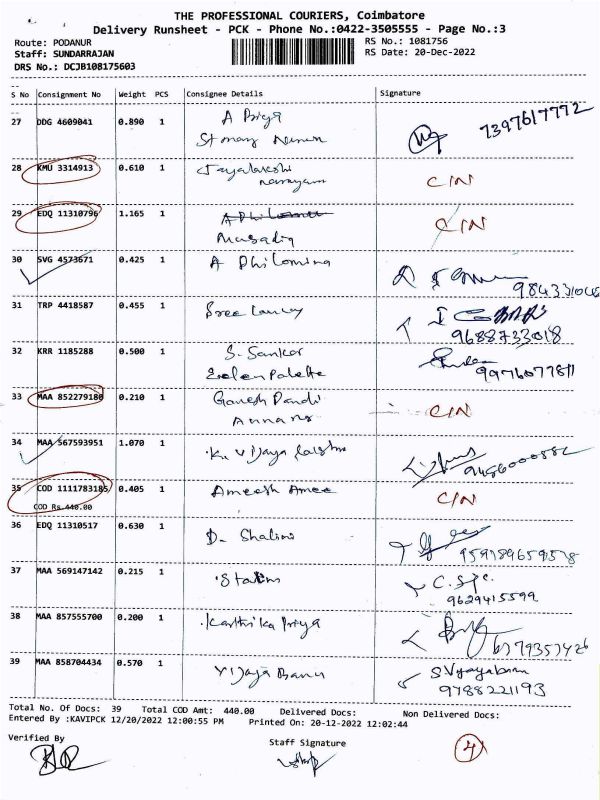 THE PROFESSIONAL COURIERS, Coimbatore
Delivery Runsheet - PCK - Phone No.:0422-3505555 - Page No.:3
Route: PODANUR
RS No.: 1081756
Staff: SUNDARRAJAN
RS Date: 20-Dec-2022
DRS No.: DCJB108175603
S No Consignment No Weight PCS Consignee Details Signature
27 DDG 4609041 0.890 1 A Priya
St mary 7397617772
28 KMU 3314913 0.610 1 Jayalakshi
narayam C/N
29 EDQ 11310796 1.165 1 A Philomina
Musadiq C/N
30 SVG 4573671 0.425 1 A Philomina
31 TRP 4418587 0.455 1 Sree
9688733018
32 KRR 1185288 0.500 1 S. Sankar
Palette 9976077811
33 MAA 852279180 0.210 1 Ganesh Pandi
C/N
34 MAA 567593951 1.070 1 K. Vijaya
9486000882
35 COD 1111783185 0.405 1 Ameesh Amee C/N
COD Rs.440.00
36 EDQ 11310517 0.630 1 D. Shalini
37 MAA 569147142 0.215 1 Stalin
9629415599
38 MAA 857555700 0.200 1 Karthika Priya
39 MAA 858704434 0.570 1 Vijaya Banu
9788221193
Total No. Of Docs: 39 Total COD Amt: 440.00 Delivered Docs: Non Delivered Docs:
Entered By :KAVIPCK 12/20/2022 12:00:55 PM Printed On: 20-12-2022 12:02:44
Verified By
Staff Signature
4